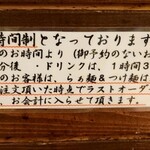 時間制となっております
のお時間より(御予約のないお
分後・ドリンクは、1時間3
のお客様は、らぁ麺&つけ麺は
注文頂いた時点でラストオーダー
お会計に入らせて頂きます。